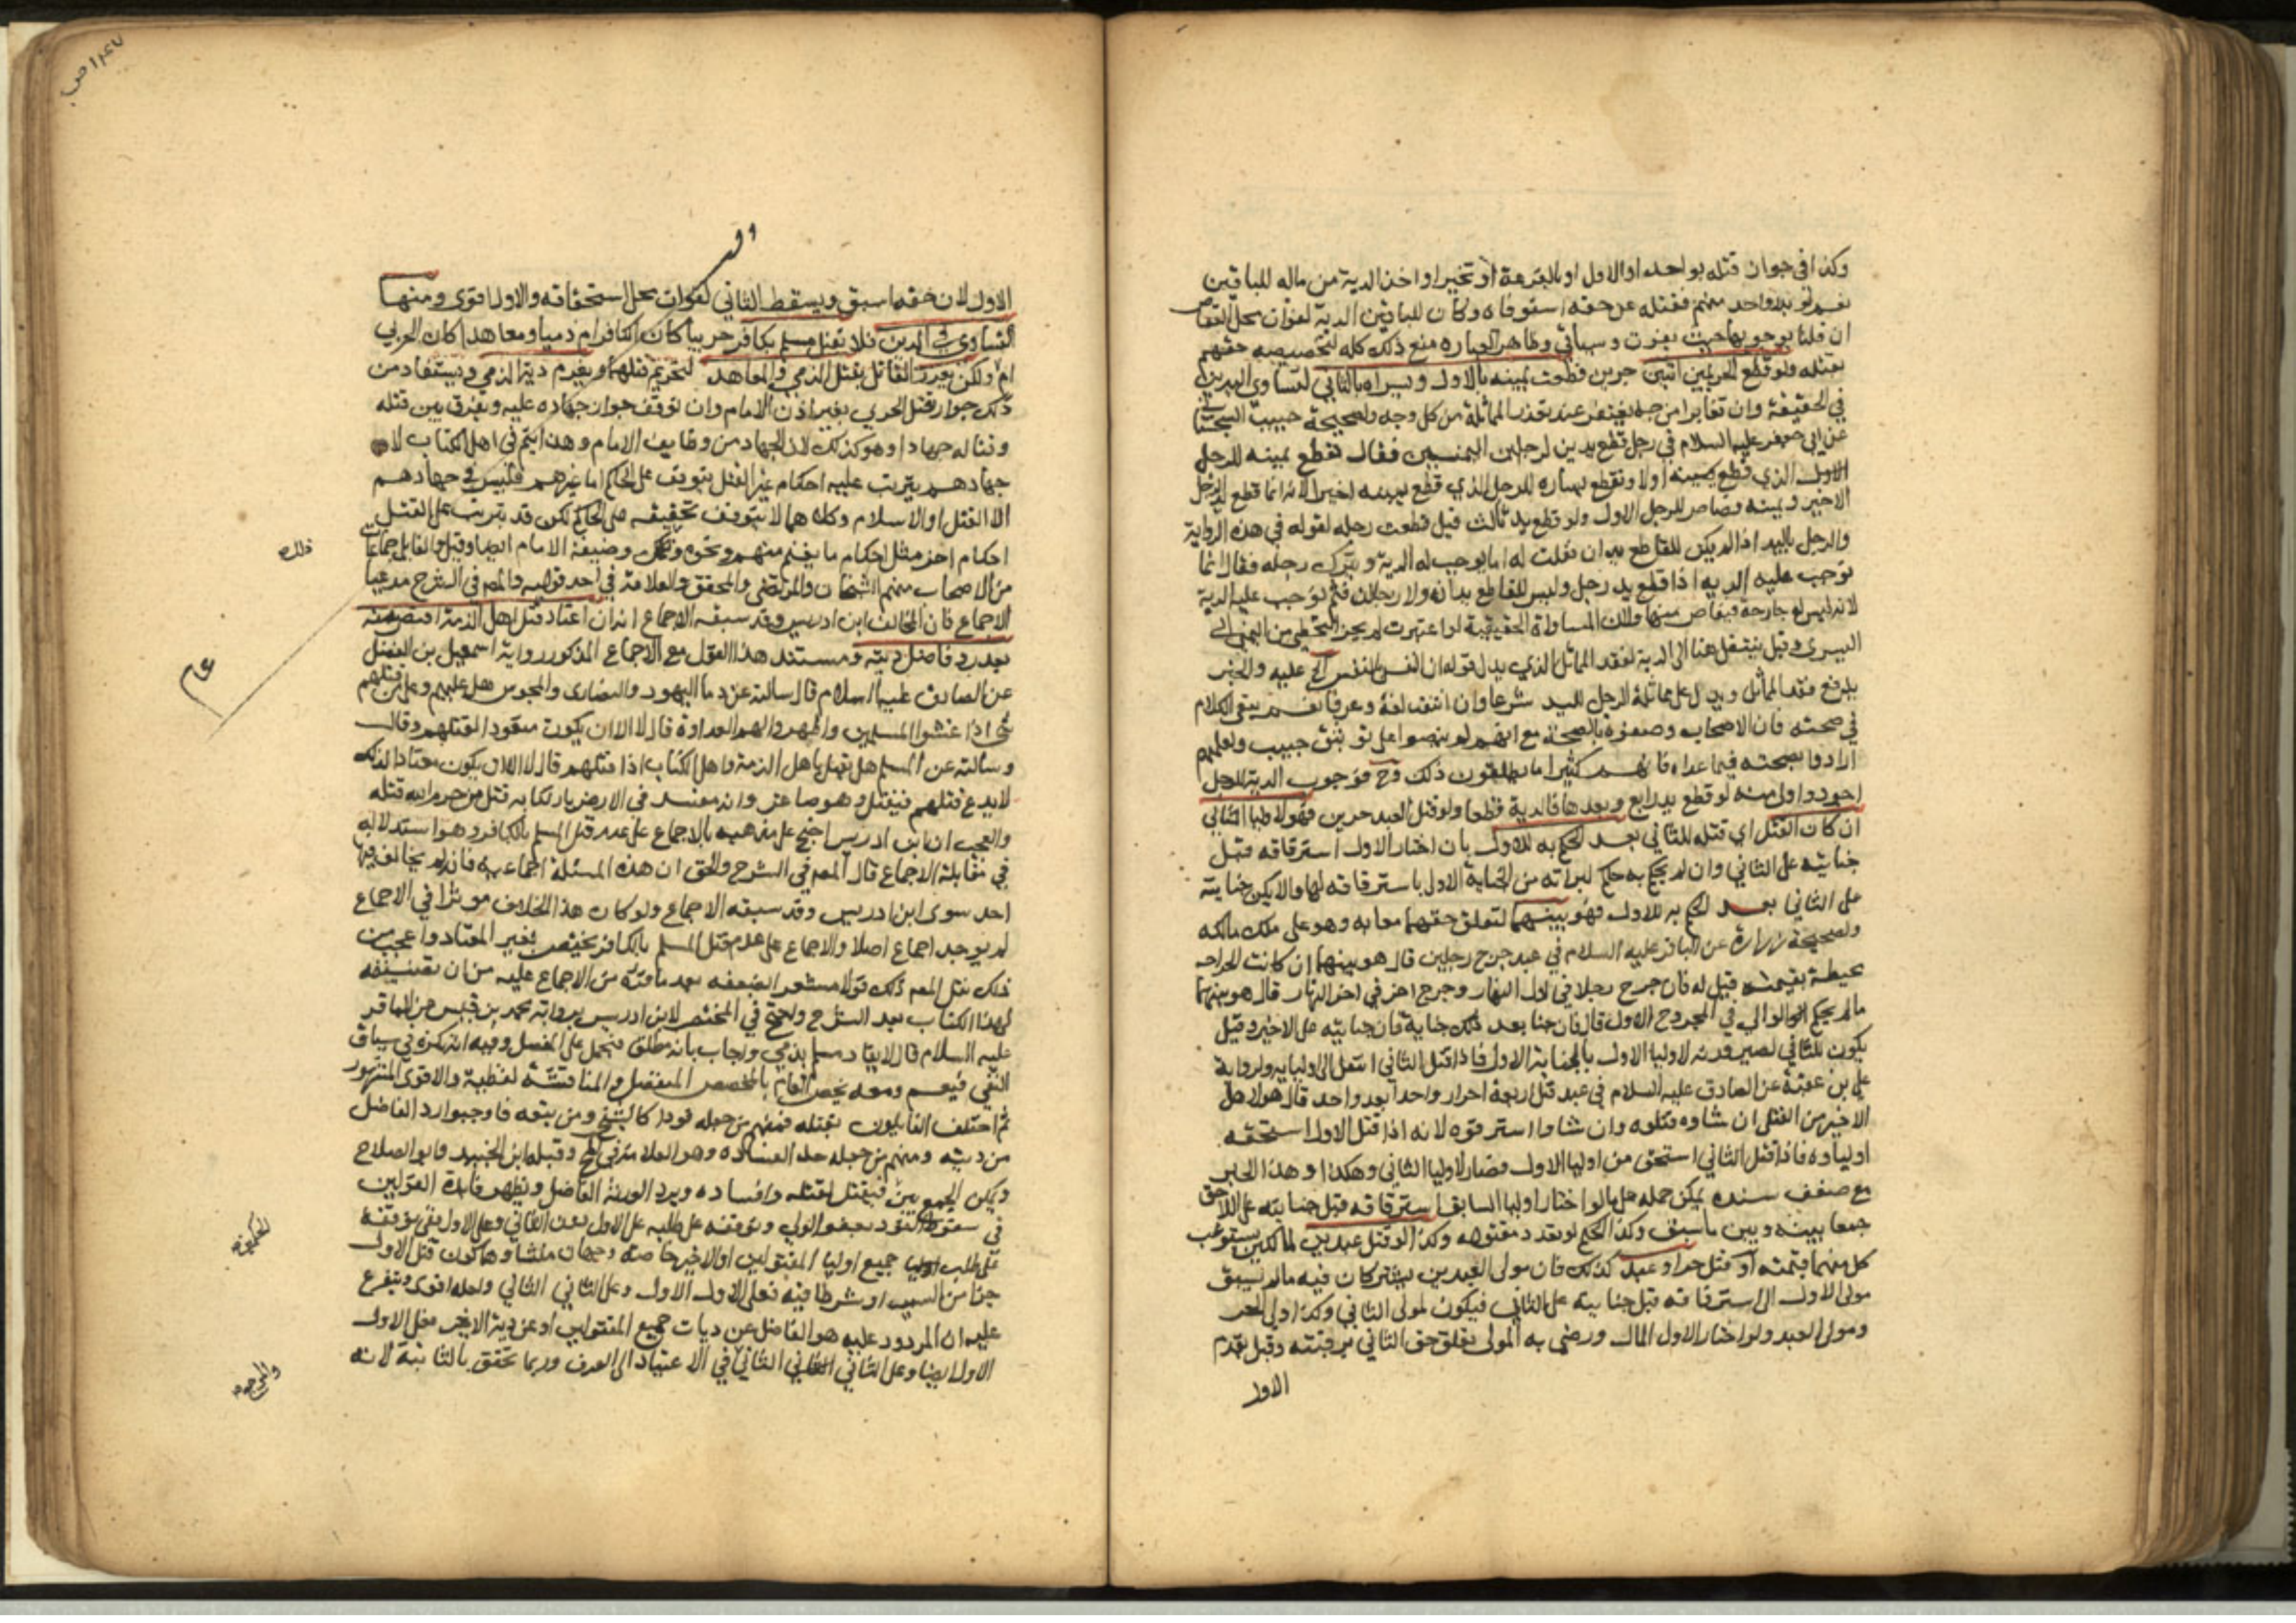 وكذا في جواز قتله بواحد او الاول او بالقرعة او تخيرا واخذ الدية من ماله للباقين
نعم لو بدر واحد منهم فقتله عن حقه استوفاه وكان للباقين الدية لفوات محل القصاص
ان قلنا بوجوبها حيث يفوت وسيأتي وظاهر العبارة منع ذلك كله لتخصيصه حقهم
بقتله ولو قطع الحر يمين اثنين حرين قطعت يمينه بالاول ويسراه بالثاني لتساوي اليدين
في الحقيقة وان تغايرا من جهة يغتفر عند تعذر المماثلة من كل وجه ولصحيحة حبيب السجستاني
عن ابي جعفر عليه السلام في رجل قطع يدين لرجلين اليمنيين فقال تقطع يمينه للرجل
الاول الذي قطع يمينه اولا وتقطع يساره للرجل الذي قطع يمينه اخيرا لانه انما قطع يد الرجل
الاخير ويمينه قصاص للرجل الاول ولو قطع يد ثالث قيل قطعت رجله لقوله في هذه الرواية
والرجل باليد اذا لم يكن للقاطع يدان فقلت له اما يوجب له الدية ويترك رجله فقال انما
توجب عليه الدية اذا قطع يد رجل وليس للقاطع يدان ولا رجلان فثم توجب عليه الدية
لانه ليس له جارحة فيقاص منها ولان المساواة الحقيقية لو اعتبرت لم يجز التخطي من اليمنى الى
اليسرى وقيل ينتقل هنا الى الدية لفقد المماثل الذي يدل قوله ان النفس بالنفس الخ عليه والخبر
يدفع فقد المماثل ويدل على مماثلة الرجل لليد شرعا وان انتفت لغة وعرفا نعم يبقى الكلام
في صحته فان الاصحاب وصفوه بالصحة مع انهم لم ينصوا على توثيق حبيب ولعلهم
ارادوا بصحته فيما عداه فانهم كثيرا ما يطلقون ذلك وح فوجوب الدية للرجل
اجود واولى منه لو قطع يد رابع وبعدها فالدية قطعا ولو قتل العبد حرين فهو لاوليا الثاني
ان كان القتل اي قتله للثاني بعد الحكم به للاول بان اختار الاول استرقاقه قبل
جنايته على الثاني وان لم يحكم به حكم لبراءته من الجناية الاول باسترقاقه لها والا يكن جنايته
على الثاني بعد الحكم به للاول فهو بينهما لتعلق حقهما معا به وهو على ملك مالكه
ولصحيحة زرارة عن الباقر عليه السلام في عبد جرح رجلين قال هو بينهما ان كانت الجراحة
محيطة بقيمته قيل له فان جرح رجلا في اول النهار وجرح اخر في اخر النهار قال هو بينهما
ما لم يحكم الوالي في المجروح الاول قال فان جنا بعد ذلك جناية فان جنايته على الاخير وقيل
يكون للثاني لصيرورته لاوليا الاول بالجناية الاول فاذا قتل الثاني انتقل الى اوليايه ولرواية
علي بن عقبة عن الصادق عليه السلام في عبد قتل اربعة احرار واحدا بعد واحد قال هو لاهل
الاخير من القتلى ان شاوه قتلوه وان شاوا استرقوه لانه اذا قتل الاول استحقه
اولياوه فاذا قتل الثاني استحق من اوليا الاول فصار لاوليا الثاني وهكذا وهذا الخبر
مع ضعف سنده يمكن حمله على ما لو اختار اوليا السابق استرقاقه قبل جنايته على اللاحق
جمعا بينه وبين ما سبق وكذا الحكم لو تعدد مقتوله وكذا لو قتل عبدين لمالكين يستوعب
كل منهما قيمته او قتل حرا وعبدا كذلك فان مولى العبدين يشتركان فيه ما لم يسبق
مولى الاول الى استرقاقه قبل جنايته على الثاني فيكون لمولى الثاني وكذا ولي الحر
ومولى العبد ولو اختار الاول المال ورضي به المولى تعلق حق الثاني برقبته وقيل يقدم
الاول
١٤٧ ص
الاول لان حقه اسبق ويسقط الثاني لفوات محل استحقاقه والاول اقوى ومنها
التساوي في الدين فلا يقتل مسلم بكافر حربيا كان الكافر ام ذميا ومعاهدا كان الحربي
ام لا ولكن يعزر القاتل بقتل الذمي والمعاهد لتحريم قتلهما ويغرم دية الذمي ويستفاد من
ذلك جواز قتل الحربي بغير اذن الامام وان توقف جواز جهاده عليه ويفرق بين قتله
وقتاله جهادا وهو كذلك لان الجهاد من وظايف الامام وهذا يتم في اهل الكتاب لان
جهادهم يترتب عليه احكام غير القتل يتوقف على الحاكم اما غيرهم فليس في جهادهم
الا القتل او الاسلام وكلاهما لا يتوقف تحقيقه على الحاكم لكن قد يترتب على القتل
احكام اخر مثل احكام ما يغنم منهم ونحوه وتلك وظيفة الامام ايضا وقيل والقايل جماعة
ذلك
من الاصحاب منهم الشيخان والمرتضى والمحقق والعلامة في احد قوليه والمص في الشرح مدعيا
الاجماع فان المخالف ابن ادريس وقد سبقه الاجماع انه ان اعتاد قتل اهل الذمة اقتص منه
بعد رد فاضل ديته ومستند هذا القول مع الاجماع المذكور رواية اسمعيل بن الفضل
عن الصادق عليه السلام قال سالته عن دما اليهود والنصارى والمجوس هل عليهم وعلى من قتلهم
شي اذا غشوا المسلمين واظهروا لهم العداوة قال لا الا ان يكون متعودا لقتلهم وقال
وسالته عن المسلم هل يقتل باهل الذمة واهل الكتاب اذا قتلهم قال لا الا ان يكون معتادا لذلك
لا يدع قتلهم فيقتل وهو صاغر وانه مفسد في الارض بارتكابه قتل من حرم الله قتله
والعجب ان ابن ادريس احتج على مذهبه بالاجماع على عدم قتل المسلم بالكافر وهو استدلال به
في مقابلة الاجماع قال المص في الشرح والحق ان هذه المسئلة اجماعية فانه لم يخالف فيها
احد سوى ابن ادريس وقد سبقه الاجماع ولو كان هذا الخلاف موثرا في الاجماع
لم يوجد اجماع اصلا والاجماع على عدم قتل المسلم بالكافر يختص بغير المعتاد واعجب من
ذلك نقل المص ذلك قولا مشعرا بضعفه بعد ما قرره من الاجماع عليه مع ان تصنيفه
لهذا الكتاب بعد الشرح واحتج في المختصر لابن ادريس برواية محمد بن قيس عن الباقر
عليه السلام قال لا يقاد مسلم بذمي واجاب بانه مطلق فيحمل على المفصل وفيه انه نكرة في سياق
النفي فيعم ومعه يخص العام بالمخصص المنفصل والمناقشة لفظية والاقوى المشهور
ثم اختلف القايلون بقتله فمنهم من جعله قودا كالشيخ ومن تبعه فاوجبوا رد الفاضل
من ديته ومنهم من جعله حد الفساده وهو العلامة في لف وقبله ابن الجنيد وابو الصلاح
ويمكن الجمع بين فيقتل لقتله وافساده ويرد الورثة الفاضل ويظهر فايدة القولين
في سقوط القود بعفو الولي وتوقفه على طلبه على الاول دون الثاني وعلى الاول ففي توقفه
على طلب جميع اوليا المقتولين او الاخير خاصة وجهان منشاوهما كون قتل الاول
جزا من السبب او شرطا فيه فعلى الاول الاول وعلى الثاني الثاني ولعله اقوى ويتفرع
عليه ان المردود عليه هو الفاضل عن ديات جميع المقتولين او عن دية الاخير فعلى الاول
الاول ايضا وعلى الثاني الثاني في الاعتياد الى العرف وربما تحقق بالثانية لانه